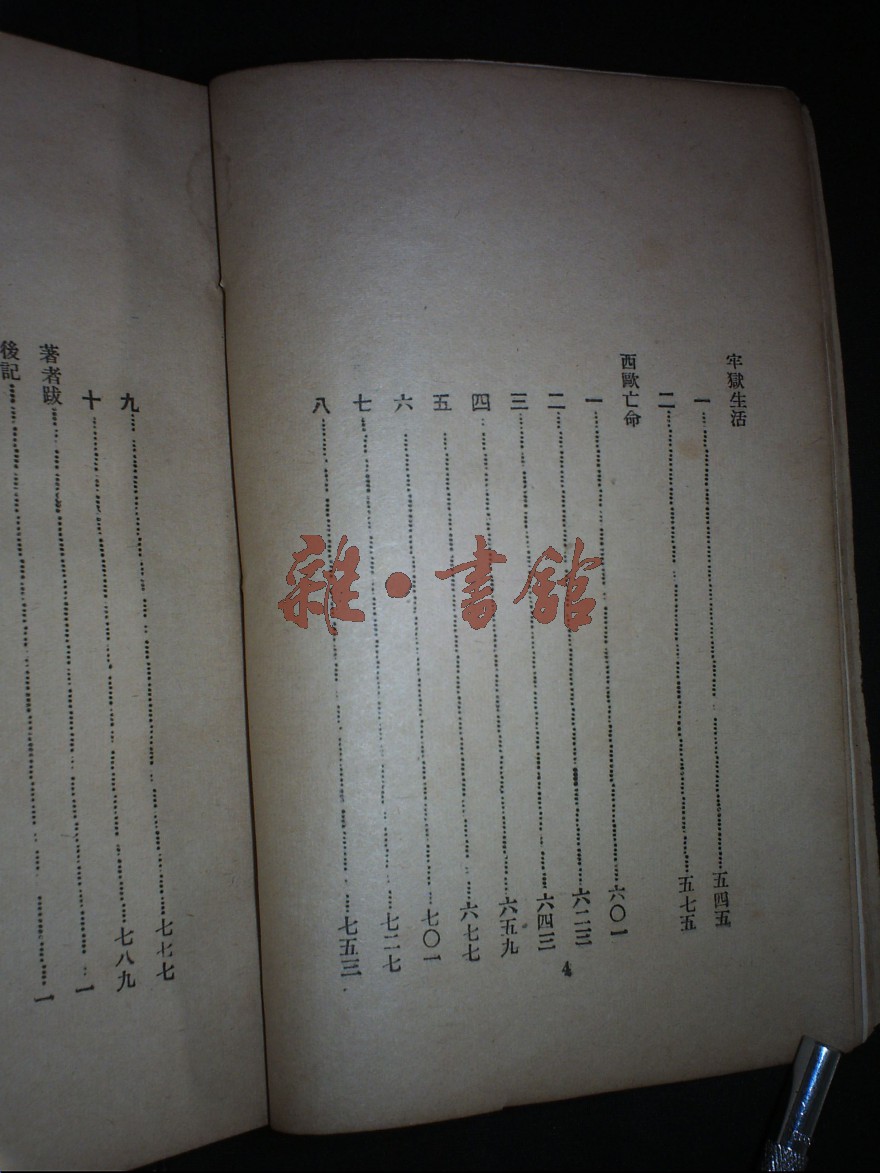 牢獄生活
一……五四五
二……五七五
西歐亡命
一……六〇一
二……六二三
三……六四三
四……六五九
五……六七七
六……七〇一
七……七二七
八……七五三
4
九……七七七
十……七八九
著者跋……一
後記……一
雜·書館